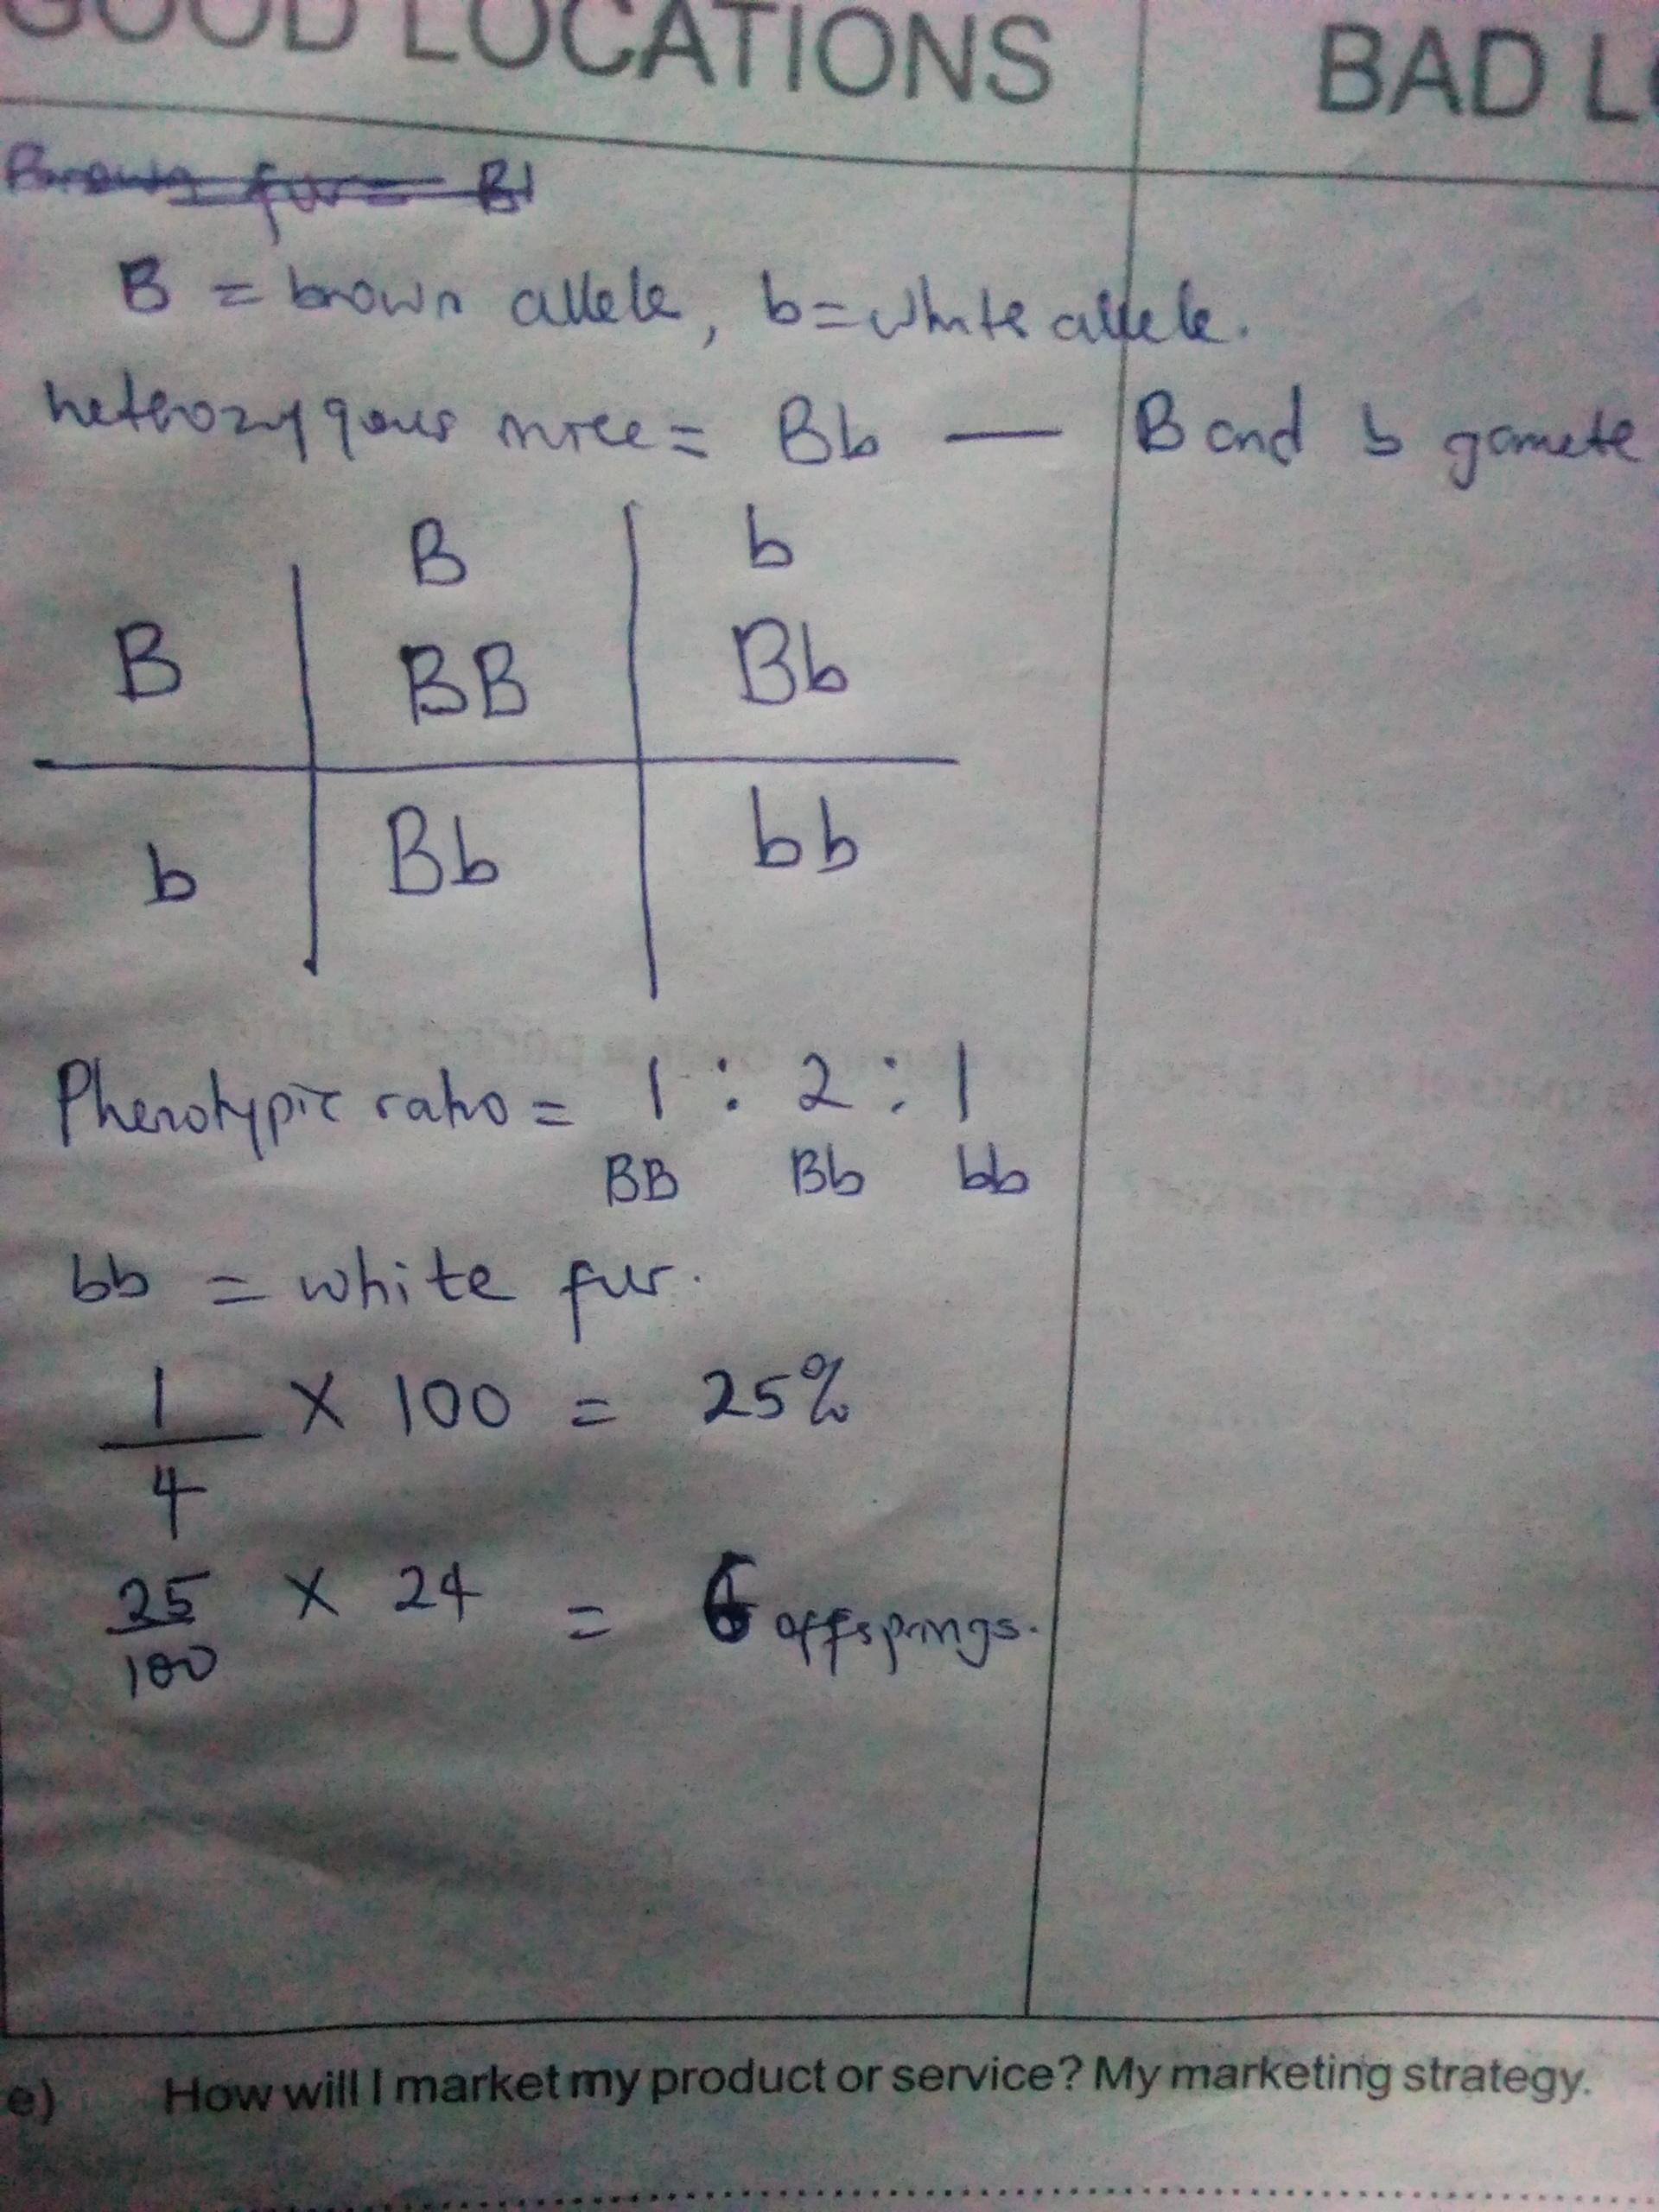 GOOD LOCATIONS BAD L
Brown fur = B
B = brown allele, b = white allele.
hetherozygous mice = Bb — B and b gamete
B b
B BB Bb
b Bb bb
Phenotypic ratio = 1 : 2 : 1
BB Bb bb
bb = white fur.
1/4 × 100 = 25%
25/100 × 24 = 6 offsprings.
e) How will I market my product or service? My marketing strategy.